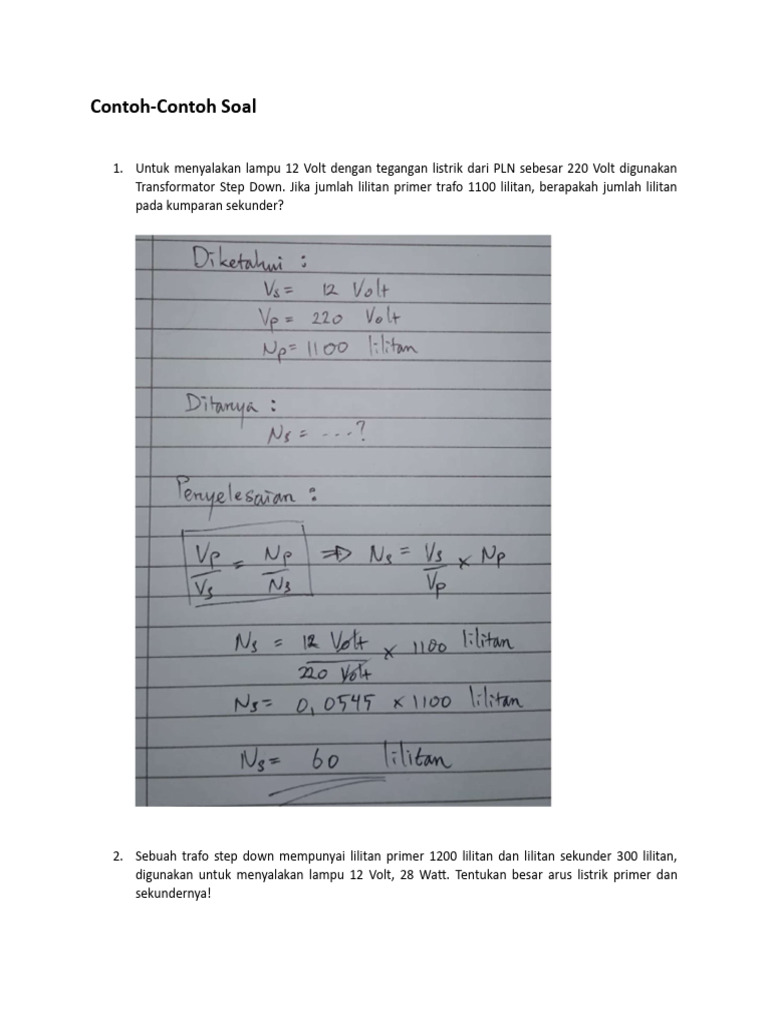 Contoh-Contoh Soal
1. Untuk menyalakan lampu 12 Volt dengan tegangan listrik dari PLN sebesar 220 Volt digunakan
Transformator Step Down. Jika jumlah lilitan primer trafo 1100 lilitan, berapakah jumlah lilitan
pada kumparan sekunder?
Diketahui :
Vs = 12 Volt
Vp = 220 Volt
Np = 1100 lilitan
Ditanya :
Ns = ....?
Penyelesaian :
Vp/Vs = Np/Ns ⇒ Ns = Vs/Vp × Np
Ns = 12 Volt/220 Volt × 1100 lilitan
Ns = 0,0545 × 1100 lilitan
Ns = 60 lilitan
2. Sebuah trafo step down mempunyai lilitan primer 1200 lilitan dan lilitan sekunder 300 lilitan,
digunakan untuk menyalakan lampu 12 Volt, 28 Watt. Tentukan besar arus listrik primer dan
sekundernya!